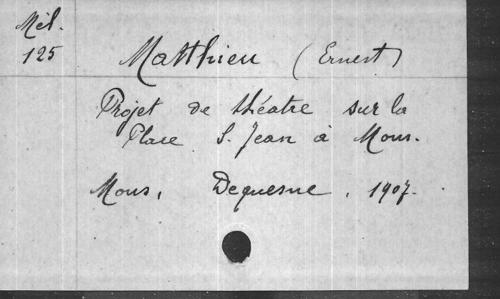 Mél.
125
Matthieu (Ernest)
Projet de théatre sur la
Place S. Jean à Mons.
Mons, Dequesne, 1907.